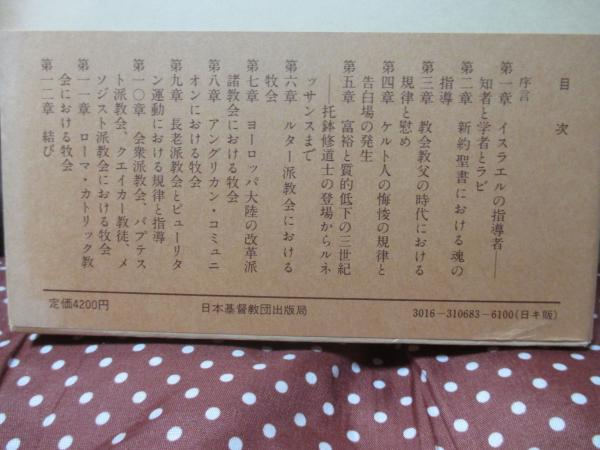 目次
序言
第一章 イスラエルの指導者――
知者と学者とラビ
第二章 新約聖書における魂の
指導
第三章 教会教父の時代における
規律と慰め
第四章 ケルト人の悔悛の規律と
告白場の発生
第五章 富裕と質的低下の三世紀
――托鉢修道士の登場からルネ
ッサンスまで
第六章 ルター派教会における
牧会
第七章 ヨーロッパ大陸の改革派
諸教会における牧会
第八章 アングリカン・コミュニ
オンにおける牧会
第九章 長老派教会とピューリタ
ン運動における規律と指導
第一〇章 会衆派教会、バプテス
ト派教会、クエイカー教徒、メ
ソジスト派教会における牧会
第一一章 ローマ・カトリック教
会における牧会
第一二章 結び
定価4200円
日本基督教団出版局
3016-310683-6100(日キ販)